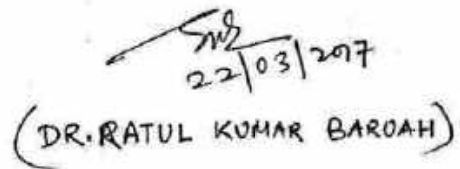 22/03/2017
(DR. RATUL KUMAR BAROAH)